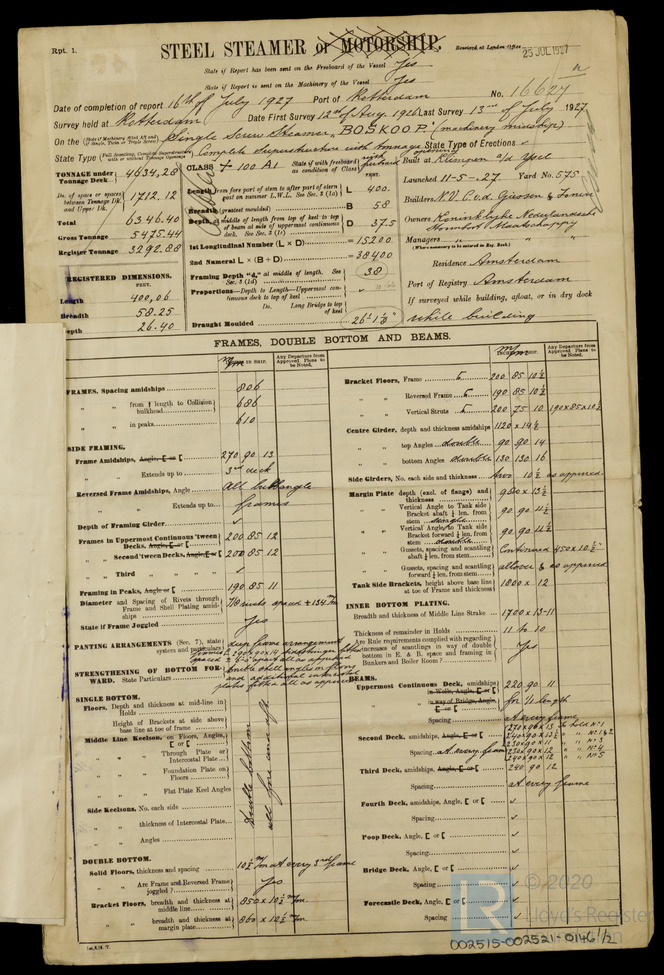 Rpt. 1.
STEEL STEAMER or MOTORSHIP.
Received at London Office 23 JUL 1927
State if Report has been sent on the Freeboard of the Vessel Yes
State if Report is sent on the Machinery of the Vessel Yes
Date of completion of report 16th of July 1927 Port of Rotterdam No. 16627
Survey held at Rotterdam Date First Survey 12th of Aug. 1926 Last Survey 13th of July 1927
On the Single Screw Steamer "BOSKOOP" (machinery midship)
State Type Complete Superstructure with tonnage opening State Type of Erections
TONNAGE under Tonnage Deck 4634,28
Do. of space or spaces between Tonnage Dk. and Upper Dk. 1712.12
Total 6346.40
Gross Tonnage 5475.44
Register Tonnage 3292.88
REGISTERED DIMENSIONS.
FEET.
Length 400,06
Breadth 58.25
Depth 26.40
CLASS + 100 A1 State if with freeboard as condition of Class with freeboard
Length from fore part of stem to after part of stern post on summer L.W.L. See Sec. 3 (1a) L 400.
Breadth (greatest moulded) B 58
Depth, at middle of length from top of keel to top of beam at side of uppermost continuous deck. See Sec. 3 (1c) D 37.5
1st Longitudinal Number (L × D) = 15200
2nd Numeral L × (B + D) = 38400
Framing Depth "d," at middle of length. See Sec. 3 (1d) 38
Proportions—Depth to Length—Uppermost continuous deck to top of keel
Do. Long Bridge to top of keel
Draught Moulded 26' 1⅛"
Built at Krimpen a/d Ysel
Launched 11-5-.27 Yard No. 575
Builders N.V. C.v.d. Giessen & Zonen
Owners Koninklyke Nederlandsche Stoomboot Maatschappy
Managers " "
(Where necessary to be entered in Reg. Book.)
Residence Amsterdam
Port of Registry Amsterdam
If surveyed while building, afloat, or in dry dock
while building
FRAMES, DOUBLE BOTTOM AND BEAMS.
Any Departure from Approved Plans to be Noted.
FRAMES, Spacing amidships 806
" " from ⅕ length to Collision bulkhead 686
" " in peaks 610
SIDE FRAMING.
Frame Amidships, Angle, [ or [ 270 90 13
" " Extends up to 3rd deck
Reversed Frame Amidships, Angle All bulb angle
" " Extends up to frames
Depth of Framing Girder ✓
Frames in Uppermost Continuous 'tween Decks, Angle, [ or [ 200 85 12
" Second 'tween Decks, Angle, [ or [ 200 85 12
" Third " " ✓
Framing in Peaks, Angle or [ 190 85 11
Diameter and Spacing of Rivets through Frame and Shell Plating amidships 7/8 rivets spaced 134 mm
State if Frame Joggled Yes
PANTING ARRANGEMENTS (Sec. 7), state system and particulars deep frame arrangement
STRENGTHENING OF BOTTOM FORWARD. State Particulars double shell angles on floors and additional intercostal plates fitted all as approved
SINGLE BOTTOM.
Floors, Depth and thickness at mid-line in Holds
" Height of Brackets at side above base line at toe of frame
Middle Line Keelson, on Floors, Angles, [ or [
" " Through Plate or Intercostal Plate
" " Foundation Plate on Floors
" " Flat Plate Keel Angles
Side Keelsons, No. each side
" " thickness of Intercostal Plate
" " Angles
double bottom all fore and aft
DOUBLE BOTTOM.
Solid Floors, thickness and spacing 10½ m/m at every 3rd frame
" " Are Frame and Reversed Frame joggled? Yes
Bracket Floors, breadth and thickness at middle line 850 × 10½ m/m
" " breadth and thickness at margin plate 860 × 10½ m/m
Any Departure from Approved Plans to be Noted.
Bracket Floors, Frame 200 85 10½
" " Reversed Frame 190 85 10½
" " Vertical Struts 200 75 10 190×85×10½
Centre Girder, depth and thickness amidships 1120 × 14½
" " top Angles double 90 90 14
" " bottom Angles double 130 130 16
Side Girders, No. each side and thickness two 10½ as approved
Margin Plate depth (excl. of flange) and thickness 960 × 13½
" " Vertical Angle to Tank side Bracket abaft ¼ len. from stem 90 90 11½
" " Vertical Angle to Tank side Bracket forward ¼ len. from stem 90 90 11½
" " Gussets, spacing and scantling abaft ¼ len. from stem Continued 450×10½
" " Gussets, spacing and scantling forward ¼ len. from stem as approved
Tank Side Brackets, height above base line at toe of Frame and thickness 1800 × 12
INNER BOTTOM PLATING.
Breadth and thickness of Middle Line Strake 1700 × 13-11
Thickness of remainder in Holds 11 to 10
Are Rule requirements complied with regarding increases of scantlings in way of double bottom in E. & B. space and framing in Bunkers and Boiler Room? Yes
BEAMS.
Uppermost Continuous Deck, amidships 220 90 11
in Wells, Angle, [ or [ for ½ length
" " in way of Bridge, Angle, [ or [
Spacing At every frame
Second Deck, amidships, Angle, [ or [
Spacing At every frame
Third Deck, amidships, Angle, [ or [ 240 90 12
Spacing at every frame
Fourth Deck, amidships, Angle, [ or [ ✓
Spacing ✓
Poop Deck, Angle, [ or [ ✓
Spacing ✓
Bridge Deck, Angle, [ or [ ✓
Spacing ✓
Forecastle Deck, Angle, [ or [ ✓
Spacing ✓
LR © 2020
Lloyd's Register
002515-002521-0146 1/2